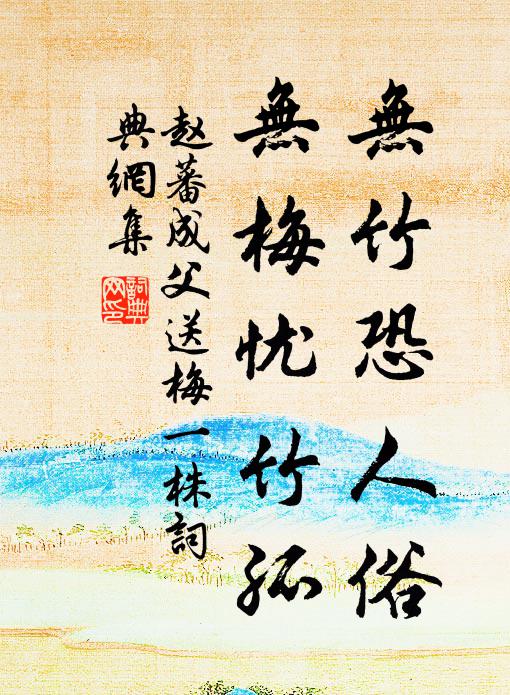 無竹恐人俗
無梅忧竹孤
赵蕃成父送梅一株詞
典網集
詞典
网印